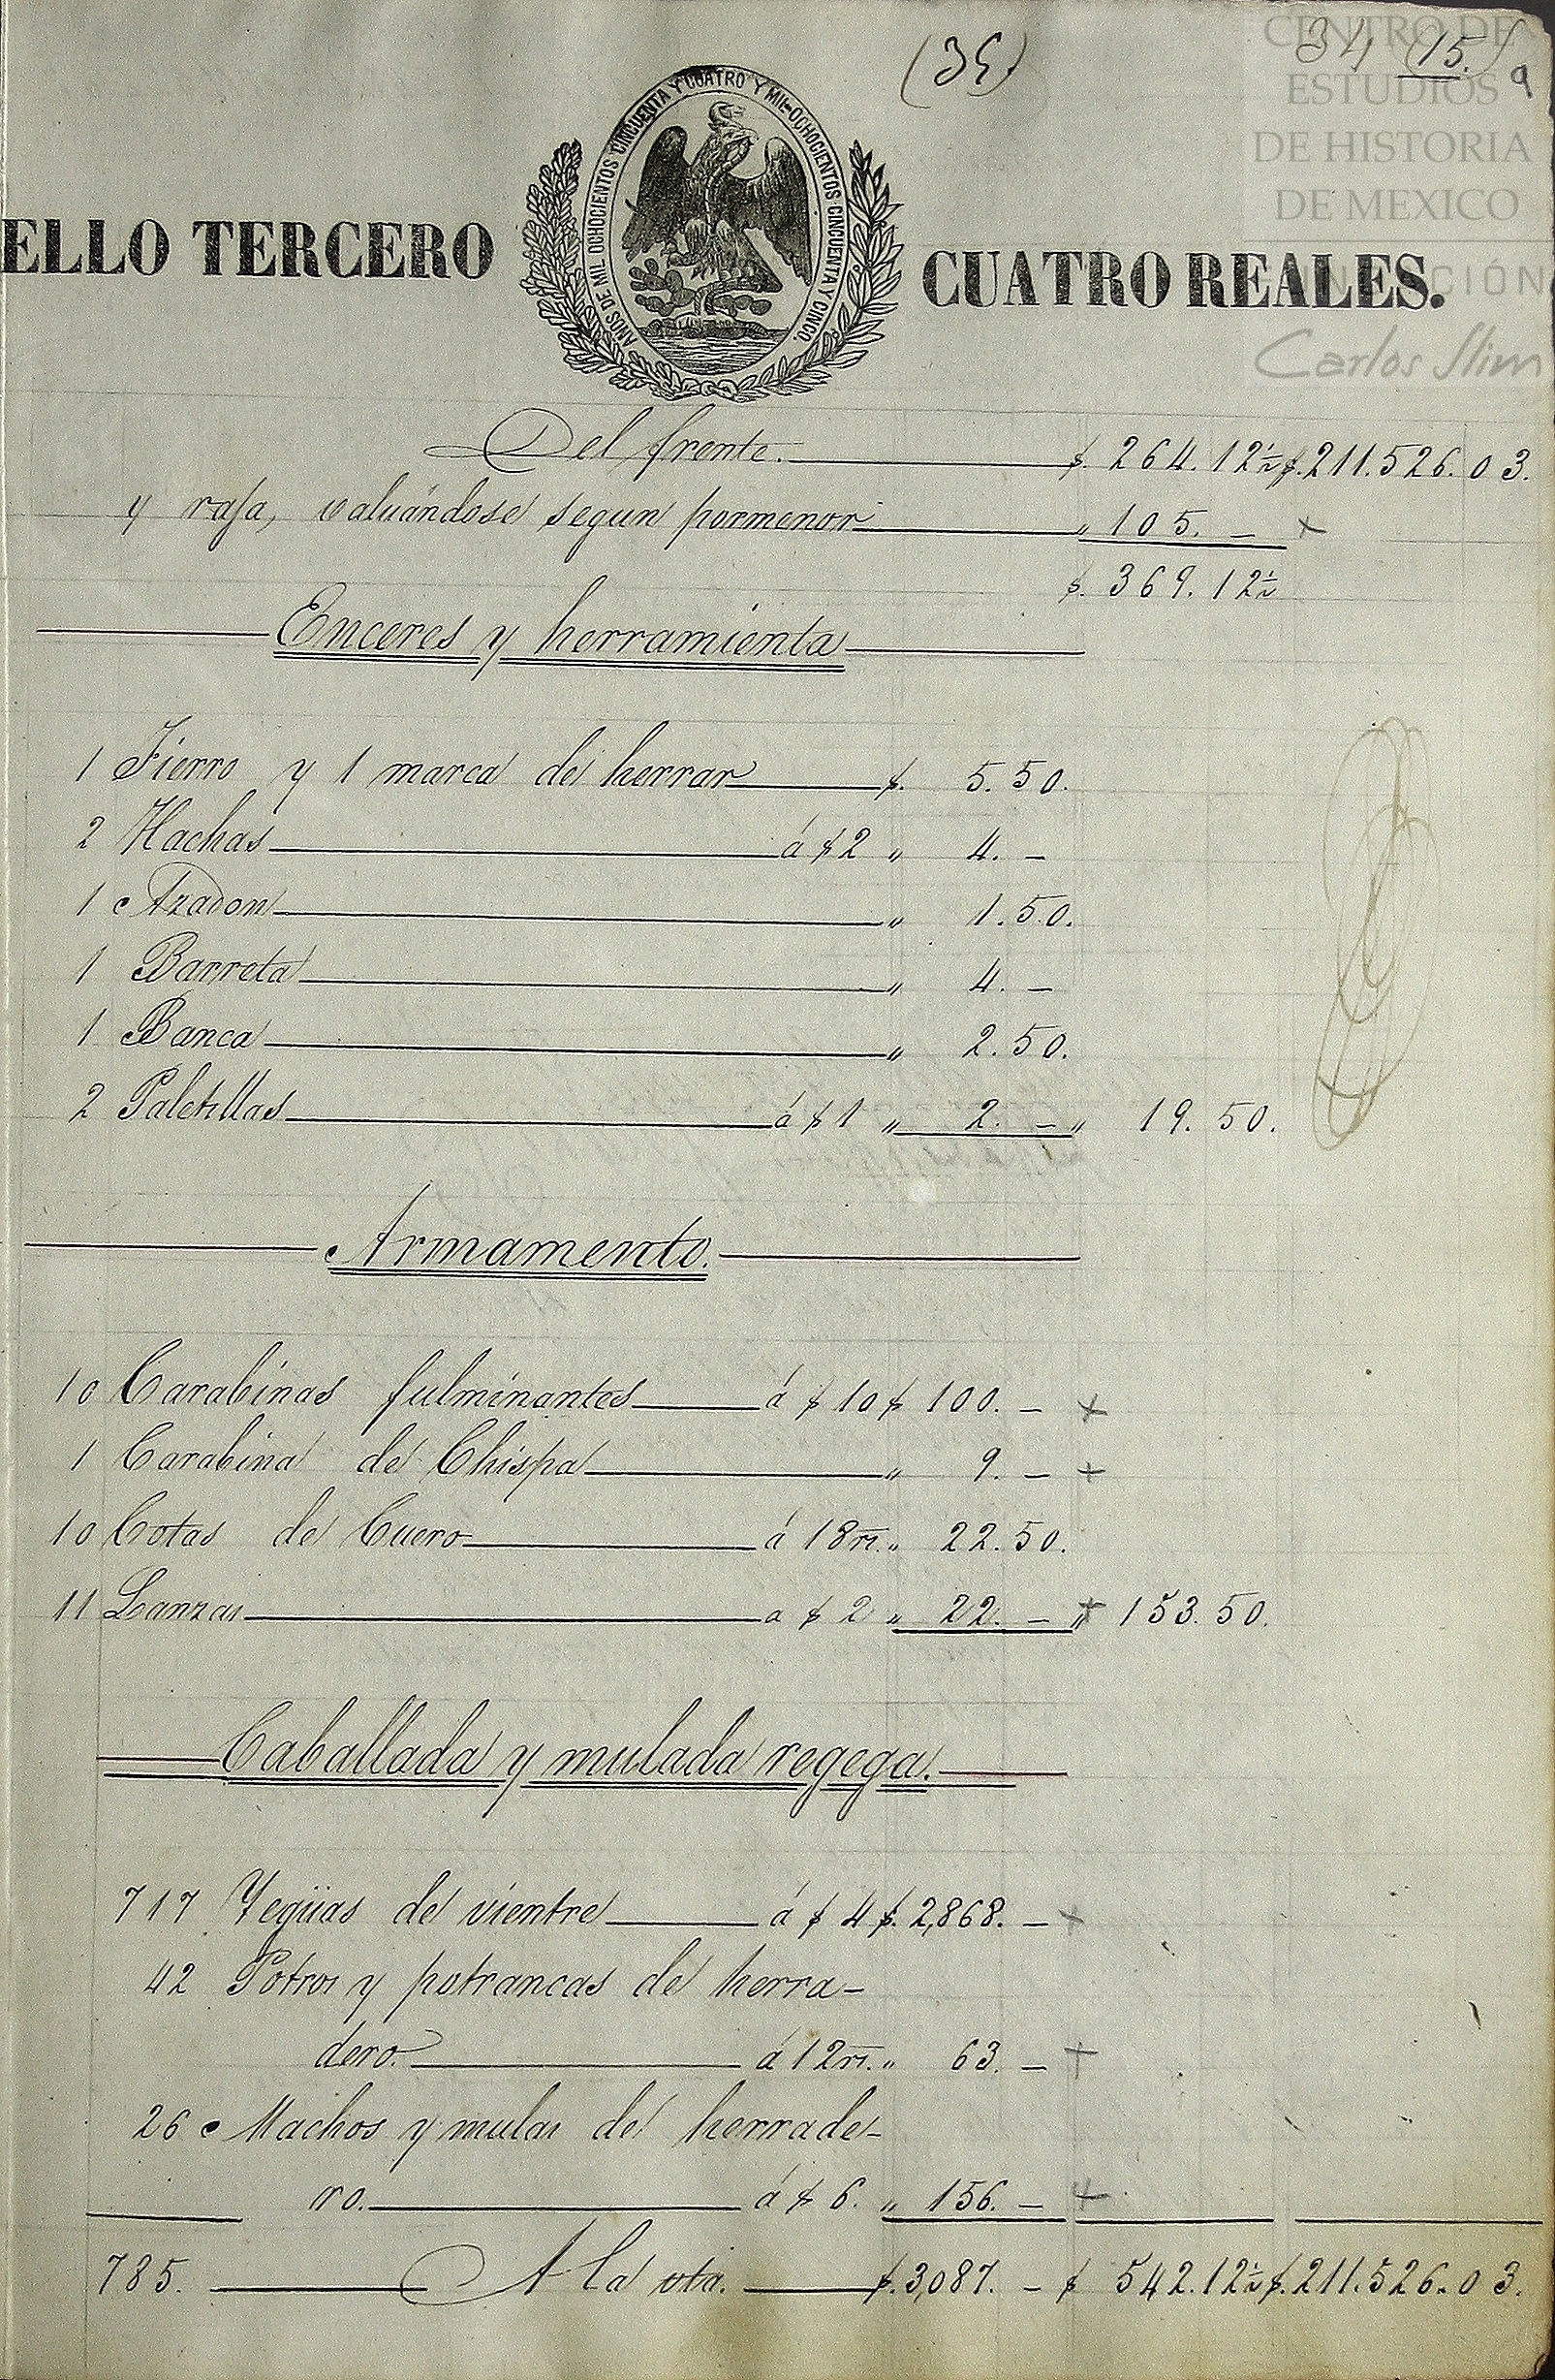 (35) 34 (15.) 9
CENTRO DE
ESTUDIOS
DE HISTORIA
DE MEXICO
Carlos Slim
AÑOS DE MIL OCHOCIENTOS CINCUENTA Y CUATRO Y MIL OCHOCIENTOS CINCUENTA Y CINCO.
ELLO TERCERO CUATRO REALES.
Del frente. $. 264.12½ $.211.526.03.
y rasa, valuándose segun pormenor " 105. –
$. 369.12½
Enceres y herramienta
1 Fierro y 1 marca de herrar $. 5.50.
2 Hachas á $2 " 4. –
1 Azadon " 1.50.
1 Barreta " 4. –
1 Banca " 2.50.
2 Paletillas á $1 " 2. – " 19.50.
Armamento.
10 Carabinas fulminantes á $10 $ 100. –
1 Carabina de Chispa " 9. –
10 Cotas de Cuero á 18 rs. " 22.50.
11 Lanzas a $2 " 22. – " 153.50.
Caballada y mulada regega.
717 Yegüas de vientre á $4 $. 2,868. –
42 Potros y potrancas de herra-
dero. á 12 rs. " 63. –
26 Machos y mulas de herrade-
ro. á $6. " 156. –
785. A la vta. $.3,087. – $ 542.12½ $.211.526.03.